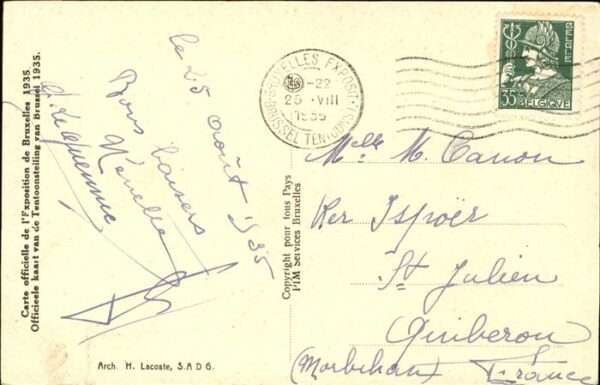 Carte officielle de l'Exposition de Bruxelles 1935
Officieele kaart van de Tentoonstelling van Brussel 1935.
le 25 août 1935
Bons baisers
Arch. H. Lacoste, S A D G.
Copyright pour tous Pays
PIM Services Bruxelles
BRUXELLES EXPOSIT. 1
-22
25 VIII
1935
BRUSSEL TENTOONST. 1
35c
BELGIQUE
Melle M. Canon
Ker Ispoër
St Julien
Quiberon
(Morbihan) France